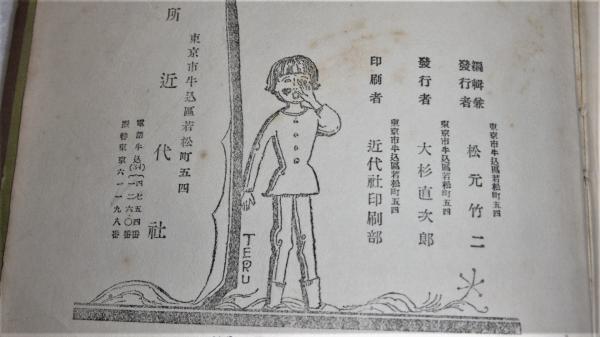 編輯兼
發行者
東京市牛込區若松町五四
松元竹二
發行者
東京市牛込區若松町五四
大杉直次郎
印刷者
東京市牛込區若松町五四
近代社印刷部
東京市牛込區若松町五四
所 近代社
電話牛込(34)四七五四番
二二六〇番
振替東京六一一九八番
TERU